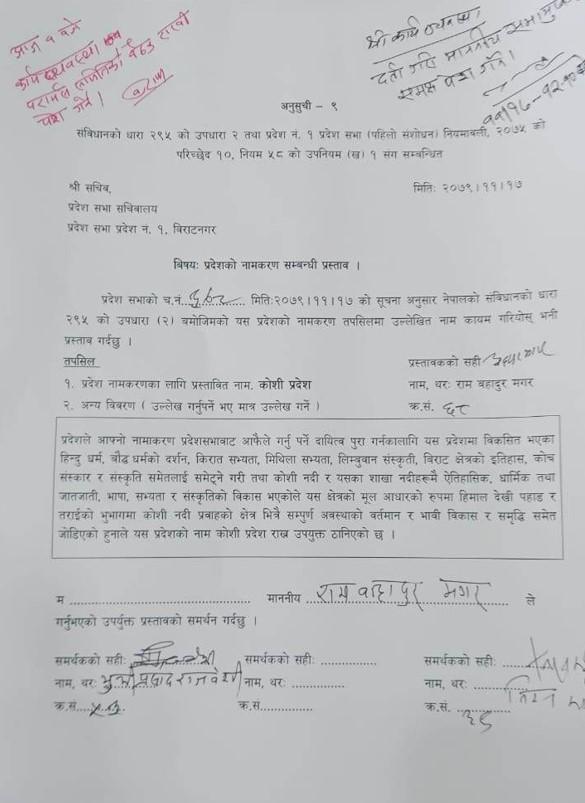 आज १ बजे
कार्य व्यवस्था
परामर्श समितिको बैठक राखी
पेश गर्नु।
श्री कार्य व्यवस्था,
दर्ता गरि माननीय सभामुख
समक्ष पेश गर्ने।
अनुसुची - ९
संविधानको धारा २९५ को उपधारा २ तथा प्रदेश नं. १ प्रदेश सभा (पहिलो संशोधन) नियमावली, २०७५ को
परिच्छेद १०, नियम ५८ को उपनियम (ख) १ संग सम्बन्धित
श्री सचिव, मितिः २०७९।११।१७
प्रदेश सभा सचिवालय
प्रदेश सभा प्रदेश नं. १, विराटनगर
बिषयः प्रदेशको नामकरण सम्बन्धी प्रस्ताव ।
प्रदेश सभाको च.नं. मितिः२०७९।११।१७ को सूचना अनुसार नेपालको संविधानको धारा
२९५ को उपधारा (२) बमोजिमको यस प्रदेशको नामकरण तपसिलमा उल्लेखित नाम कायम गरियोस् भनी
प्रस्ताव गर्दछु ।
तपसिल प्रस्तावकको सही
१. प्रदेश नामकरणका लागि प्रस्तावित नाम. कोशी प्रदेश नाम, थरः राम बहादुर मगर
२. अन्य विवरण ( उल्लेख गर्नुपर्ने भए मात्र उल्लेख गर्ने ) क्र.सं. ६८
प्रदेशले आफ्नो नामाकरण प्रदेशसभावाट आफैले गर्नु पर्ने दायित्व पुरा गर्नकालागि यस प्रदेशमा विकसित भएका
हिन्दु धर्म, बौद्ध धर्मको दर्शन, किरात सभ्यता, मिथिला सभ्यता, लिम्वुवान संस्कृती, विराट क्षेत्रको इतिहास, कोच
संस्कार र संस्कृति समेतलाई समेट्ने गरी तथा कोशी नदी र यसका शाखा नदीहरूमै ऐतिहासिक, धार्मिक तथा
जातजाती, भाषा, सभ्यता र संस्कृतिको विकास भएकोले यस क्षेत्रको मूल आधारको रुपमा हिमाल देखी पहाड र
तराईको भुभागमा कोशी नदी प्रवाहको क्षेत्र भित्रै सम्पुर्ण अवस्थाको वर्तमान र भावी विकास र समृद्धि समेत
जोडिएको हुनाले यस प्रदेशको नाम कोशी प्रदेश राख्न उपयुक्त ठानिएको छ ।
म ........................................ माननीय ..राम बहादुर मगर.. ले
गर्नुभएको उपर्युक्त प्रस्तावको समर्थन गर्दछु ।
समर्थकको सहीः समर्थकको सहीः .............. समर्थकको सहीः
नाम, थरः राजवंशी नाम, थरः .............. नाम, थरः
क्र.सं. क्र.सं.............. क्र.सं.